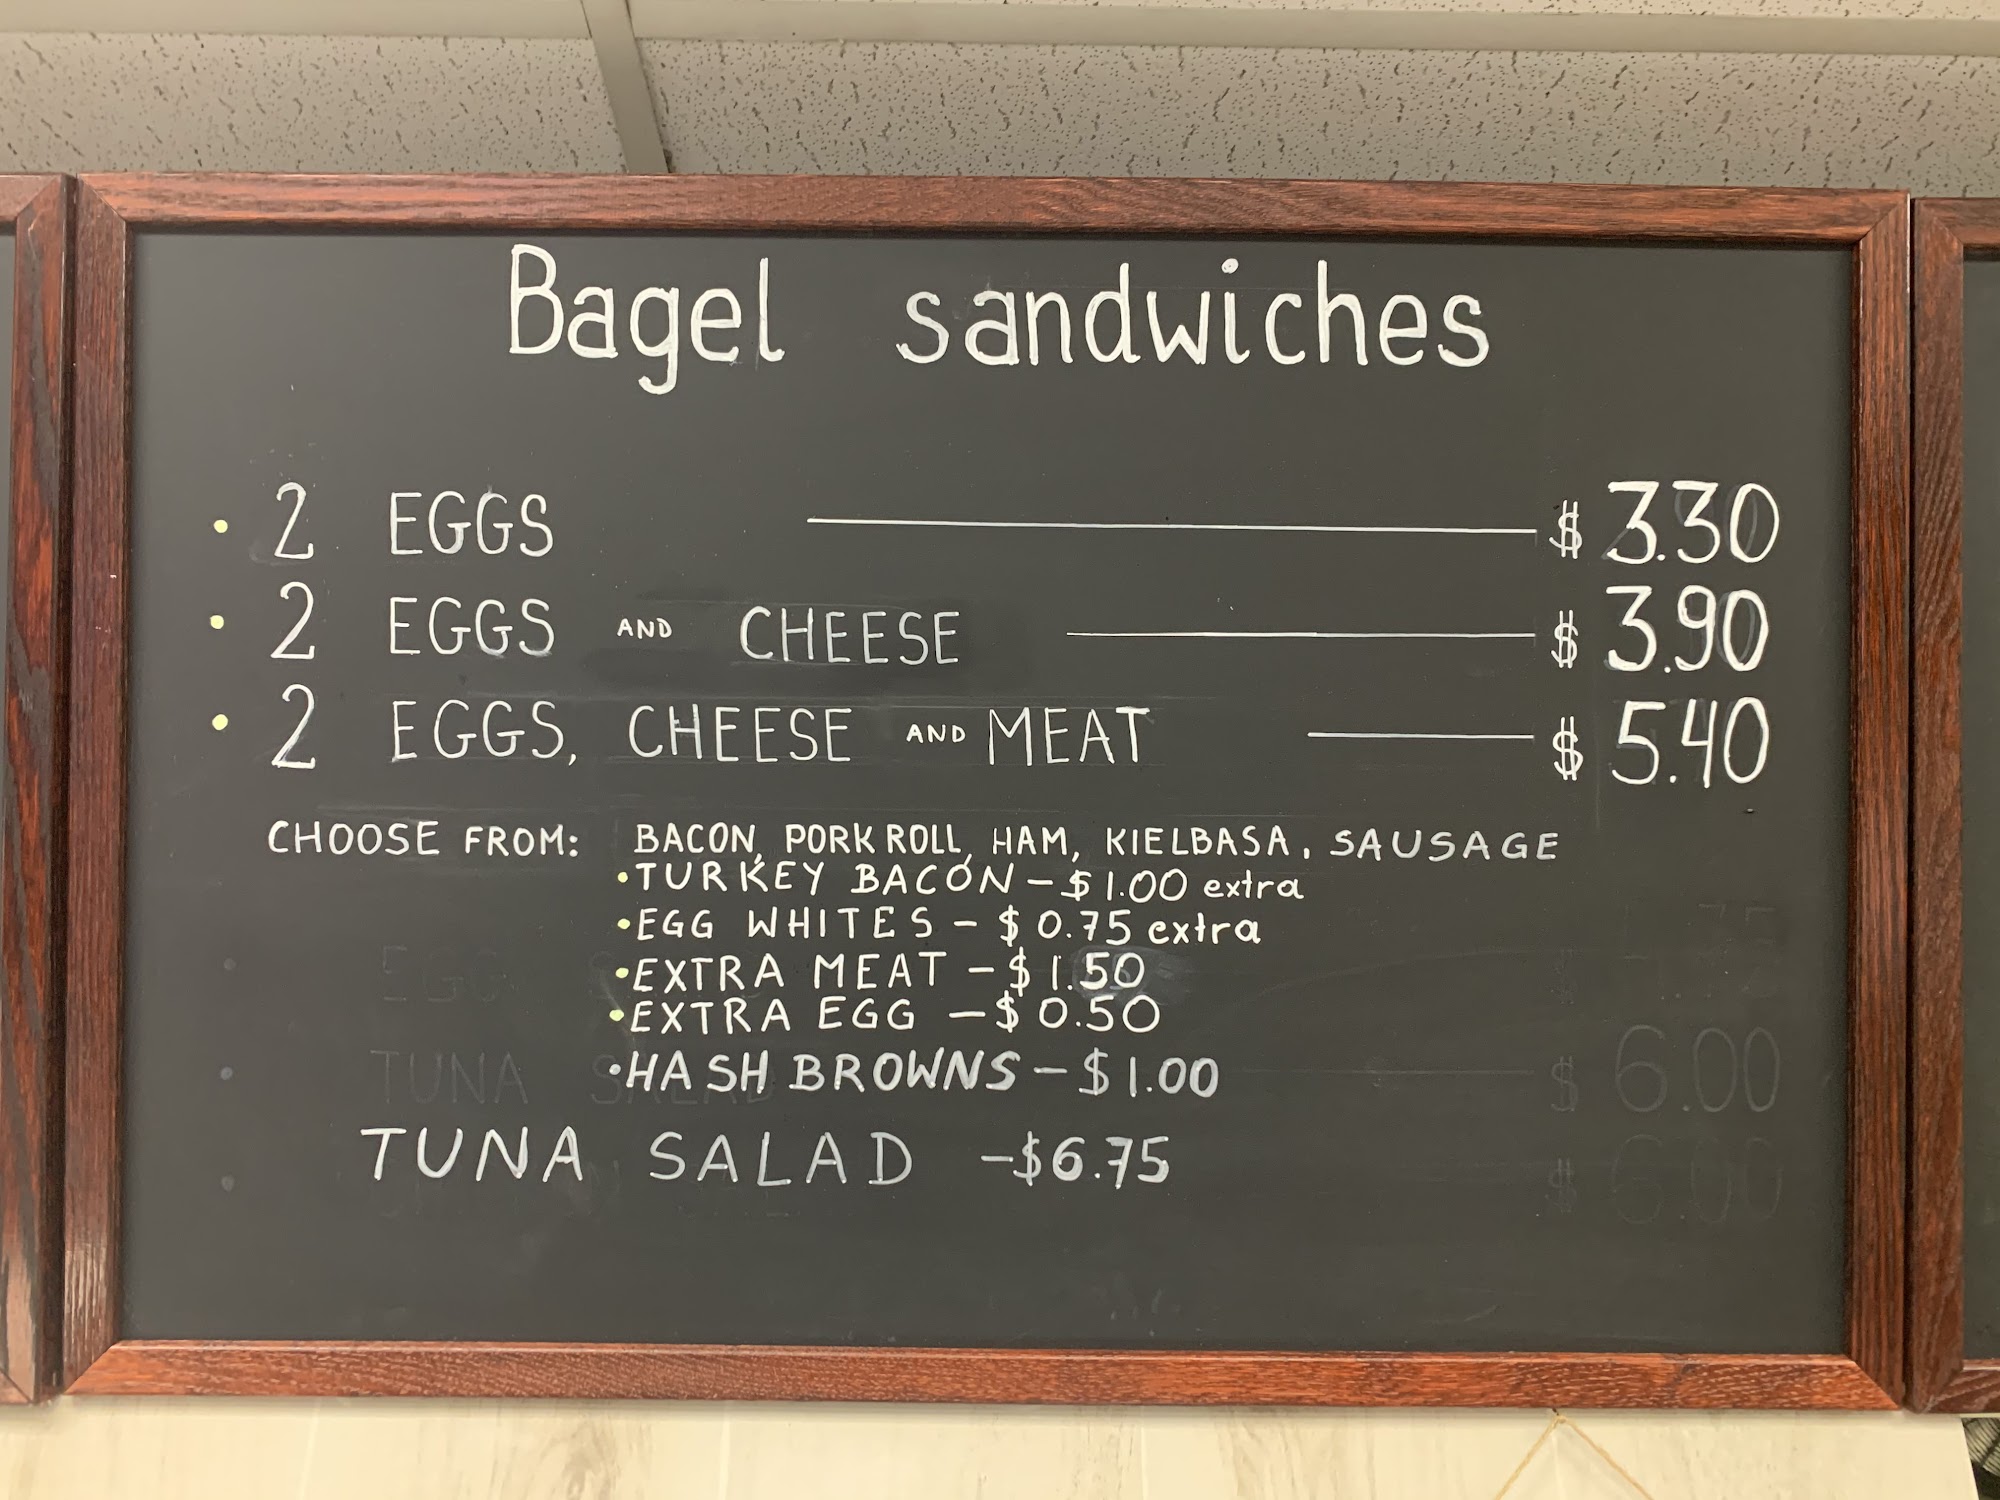 Bagel sandwiches
• 2 EGGS $ 3.30
• 2 EGGS AND CHEESE $ 3.90
• 2 EGGS, CHEESE AND MEAT $ 5.40
CHOOSE FROM: BACON, PORK ROLL, HAM, KIELBASA, SAUSAGE
• TURKEY BACON – $ 1.00 extra
• EGG WHITES – $ 0.75 extra
• EXTRA MEAT – $ 1.50
• EXTRA EGG – $ 0.50
• HASH BROWNS – $ 1.00
TUNA SALAD $ 6.00
TUNA SALAD – $6.75
$ 6.00